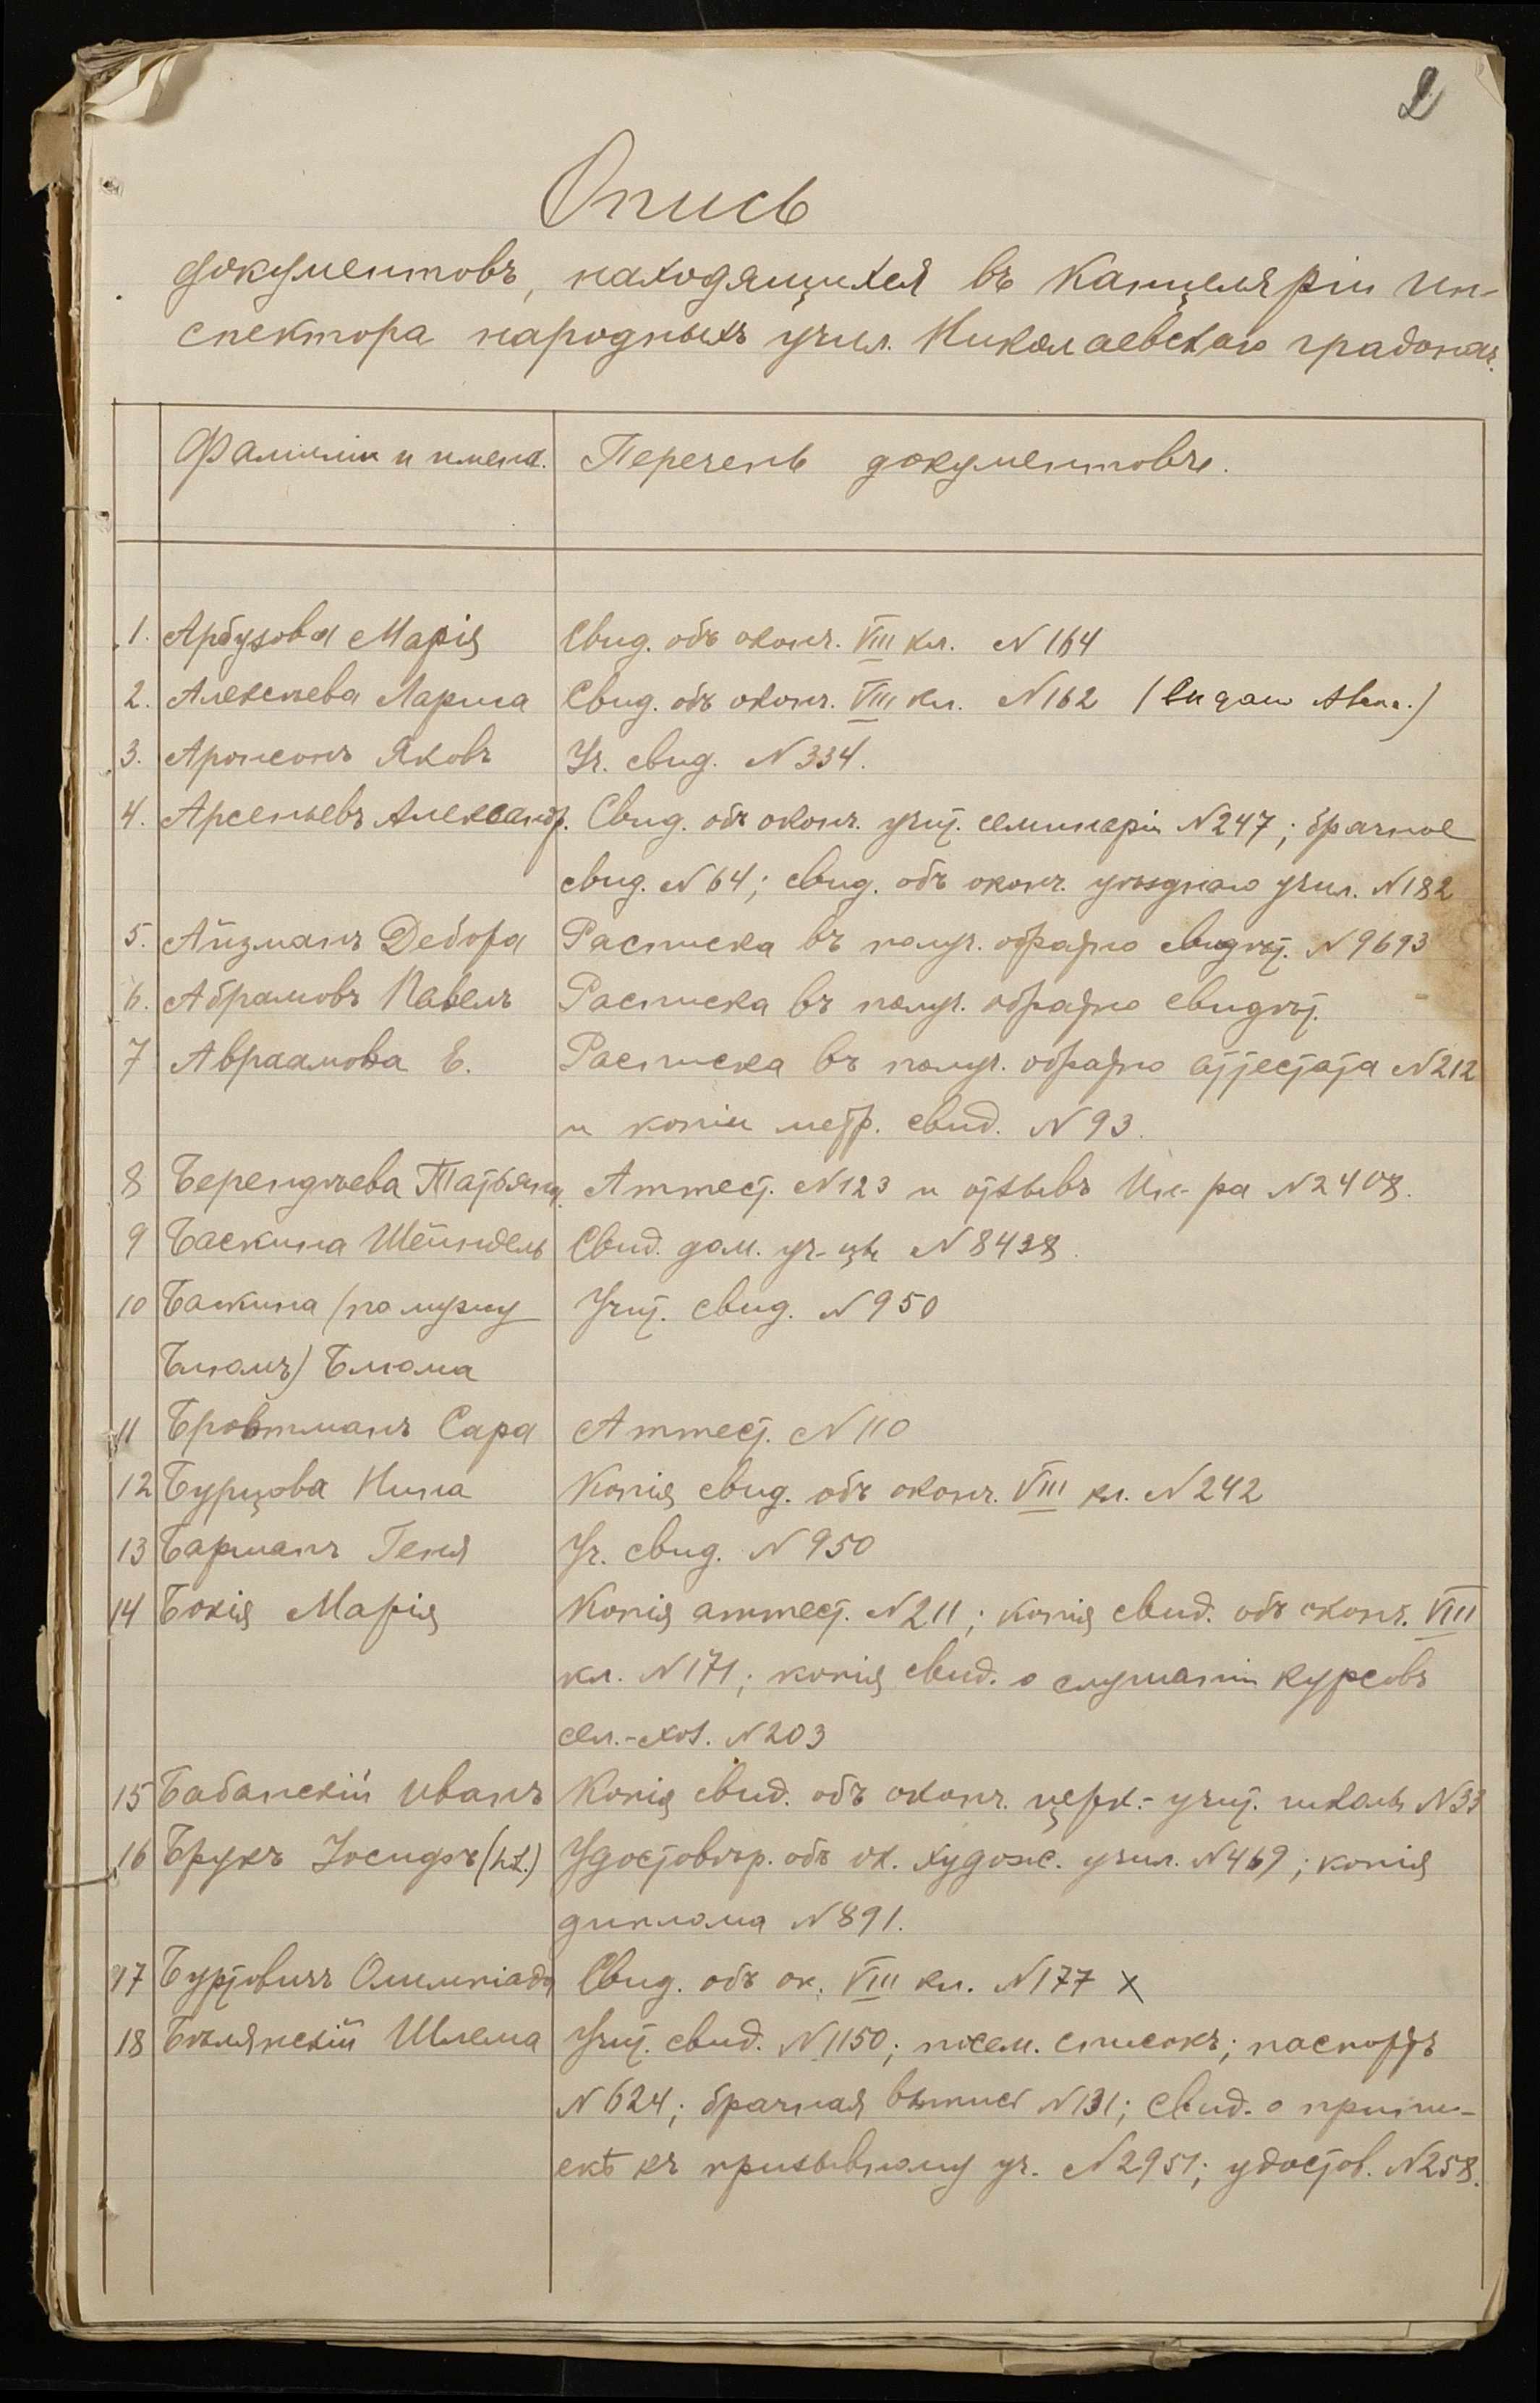 2
Опись
документовъ, находящихся въ канцеляріи Ин-
спектора народныхъ учил. Николаевскаго градонач.
Фамиліи и имена. Перечень документовъ.
1. Арбузова Марія Свид. объ оконч. VIII кл. N 164
2. Алексѣева Лариса Свид. объ оконч. VIII кл. N 162 (видано
3. Аронсонъ Яковъ Уч. свид. N 334.
4. Арсеньевъ Александр. Свид. объ оконч. учит. семинаріи N 247; брачное
свид. N 64; свид. объ оконч. уѣзднаго учил. N 182
5. Айзманъ Дебора Расписка въ получ. обратно свидѣт. N 9693
6. Абрамовъ Павелъ Расписка въ получ. обратно свидѣт.
7 Авраамова Е. Расписка въ получ. обратно аттестата N 212
и копіи метр. свид. N 93.
8 Берендѣева Татьяна Аттест. N 123 и отзывъ Ин-ра N 2408.
9 Баскина Шейндель Свид. дом. уч-цы N 8438.
10 Бажина (по мужу Учит. свид. N 950
Блюмъ) Блюма
11 Бровтманъ Сара Аттест. N 110
12 Бурцова Нина Копія свид. объ оконч. VIII кл. N 242
13 Барманъ Геня Уч. свид. N 950
14 Бокія Марія Копія аттест. N 211; копія свид. объ оконч. VIII
кл. N 171; копія свид. о слушаніи курсовъ
сел.-хоз. N 203
15 Бабанскій Иванъ Копія свид. объ оконч. церк.-учит. школы N 33
16 Брукъ Іосифъ Удостовѣр. объ ок. худож. учил. N 469; копія
диплома N 891.
17 Буртовичъ Олимпіада Свид. объ ок. VIII кл. N 177 х
18 Бѣлянскій Шлема Учит. свид. N 1150; посем. списокъ; паспортъ
N 624; брачная выпись N 131; свид. о припи-
скѣ къ призывному уч. N 2951; удостов. N 258.